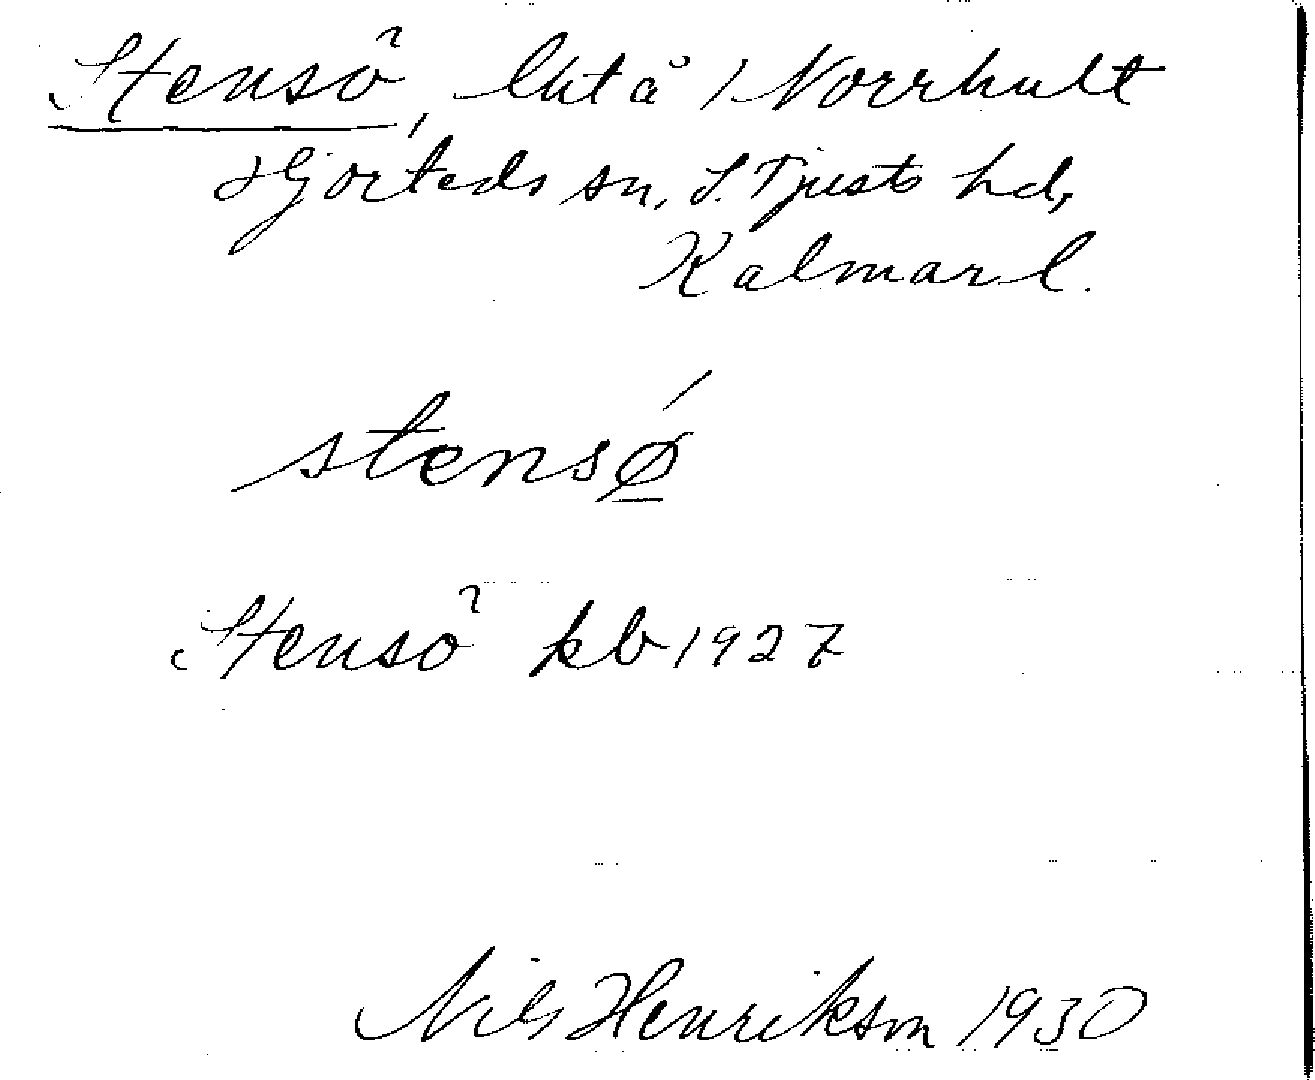 Stensö, lht å 1 Norrhult
Hjorteds sn, S. Tjusts hd,
Kalmar l.
stensǿ̲
Stensö kb 1927
Nils Henrikson 1930